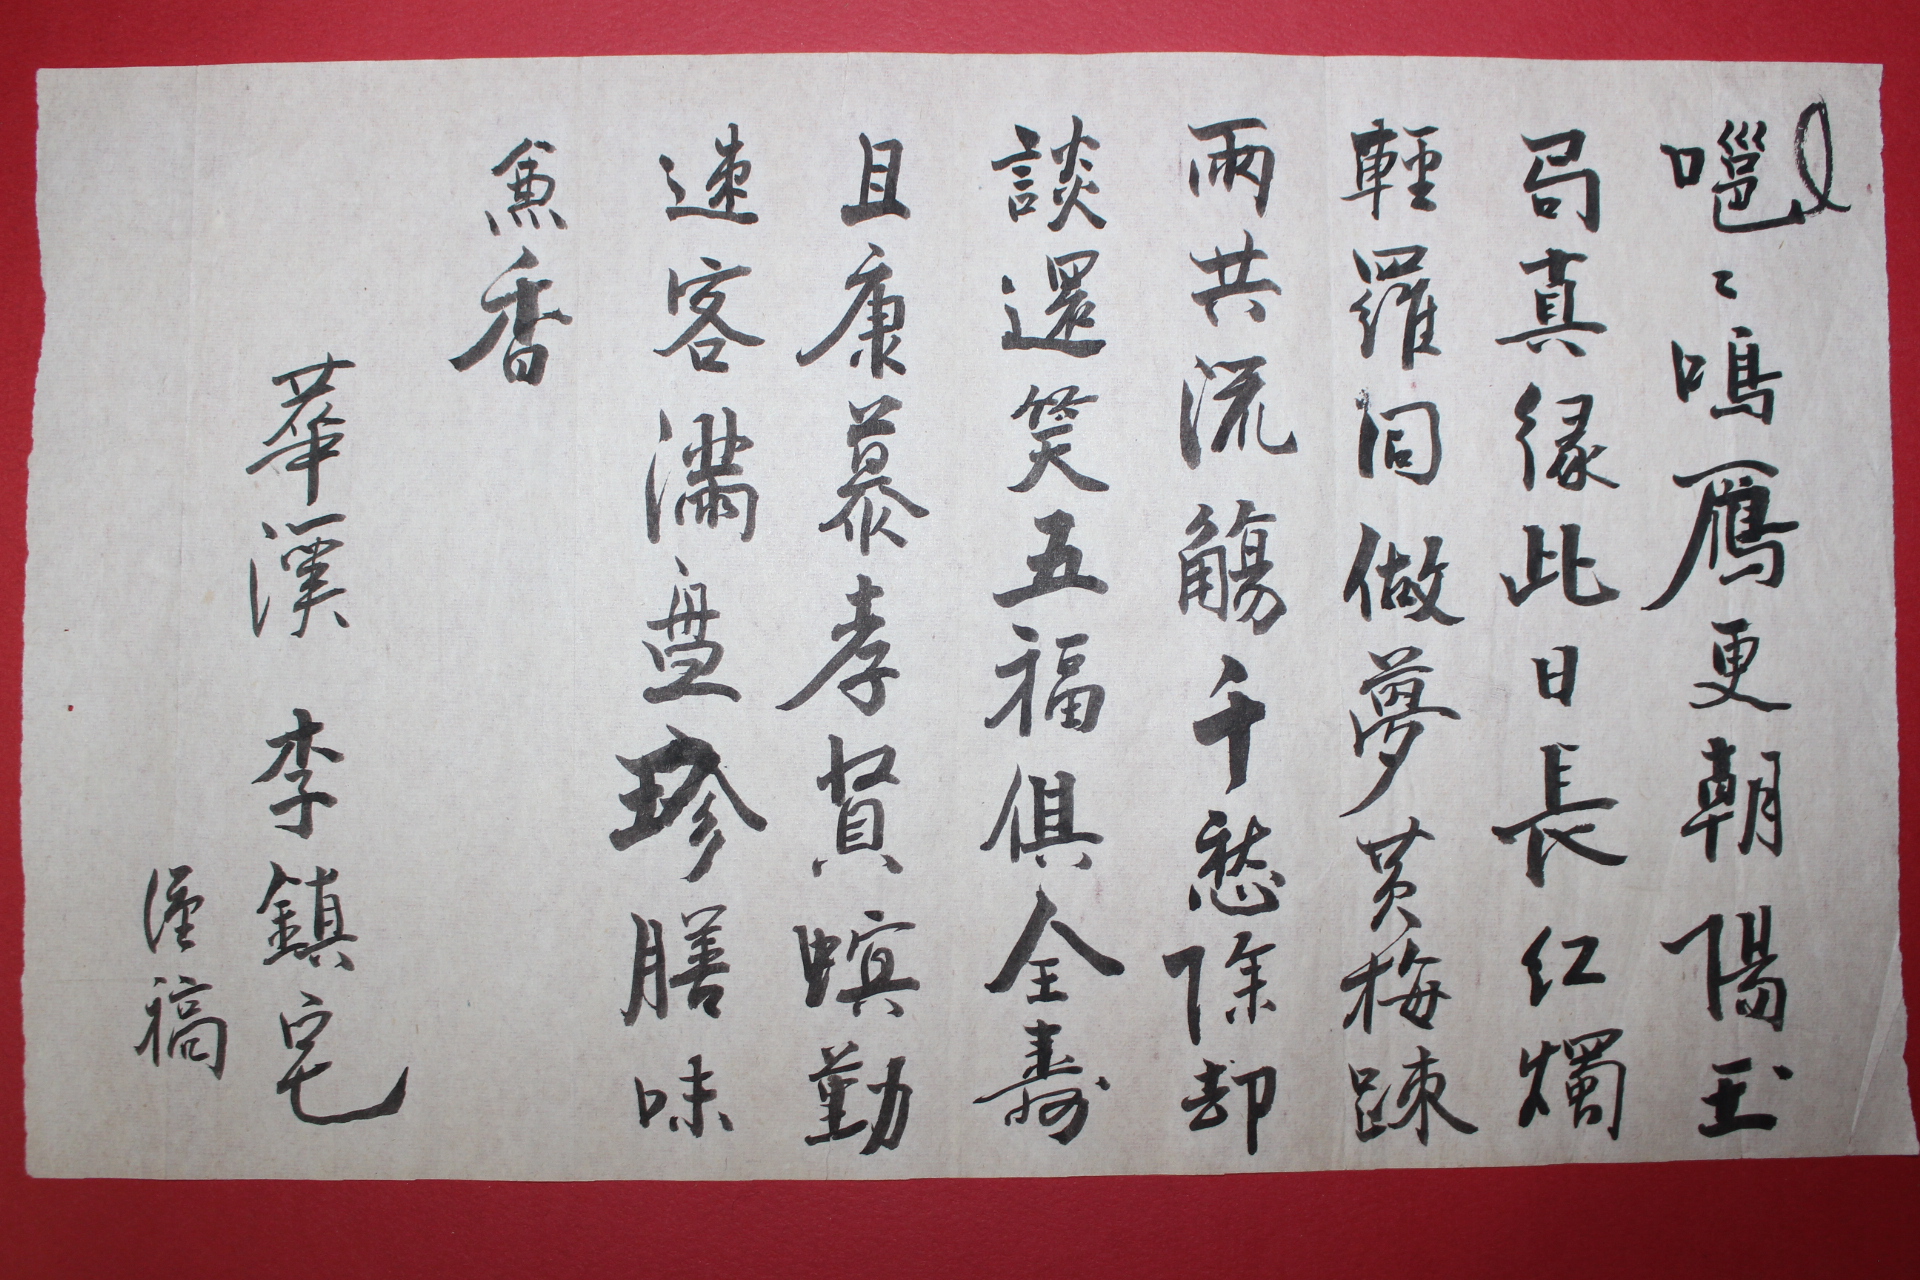 嗈〻鳴鴈更朝陽玉
局真緣此日長紅燭
輕羅同做夢黃梅踈
雨共流觴千愁除却
談還笑五福俱全壽
且康慕孝賢嬪勤
速客滿盤珍膳味
兼香
華溪 李鎮宅
謹稿